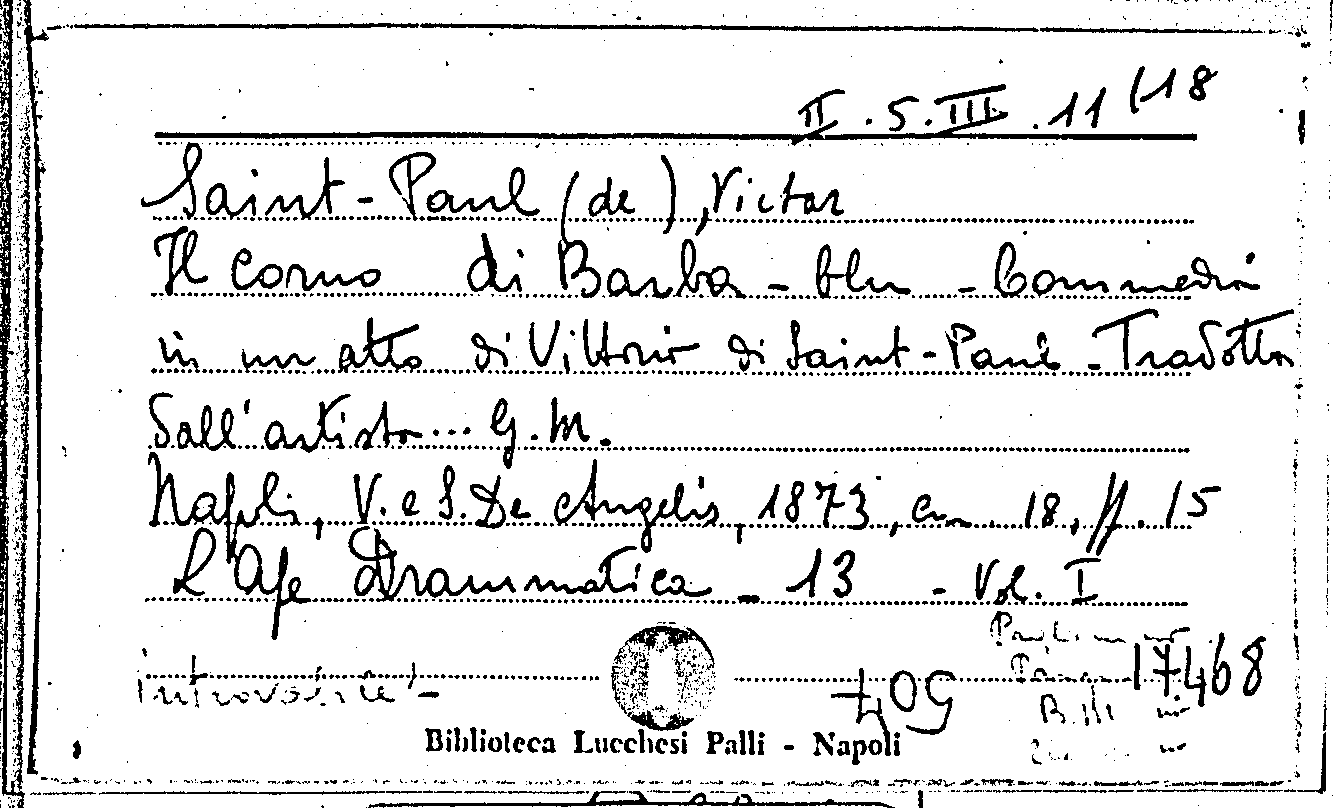 II.5.III.11(18
Saint-Paul (de), Victor
Il corno di Barba-blu - Commedia
in un atto di Vittorio di Saint-Paul - Tradotta
dall'artista... G.M.
Napoli, V. e S. De Angelis, 1873, cm. 18, pp. 15
L'Ape Drammatica - 13 - Vol. I
17468
Biblioteca Lucchesi Palli - Napoli